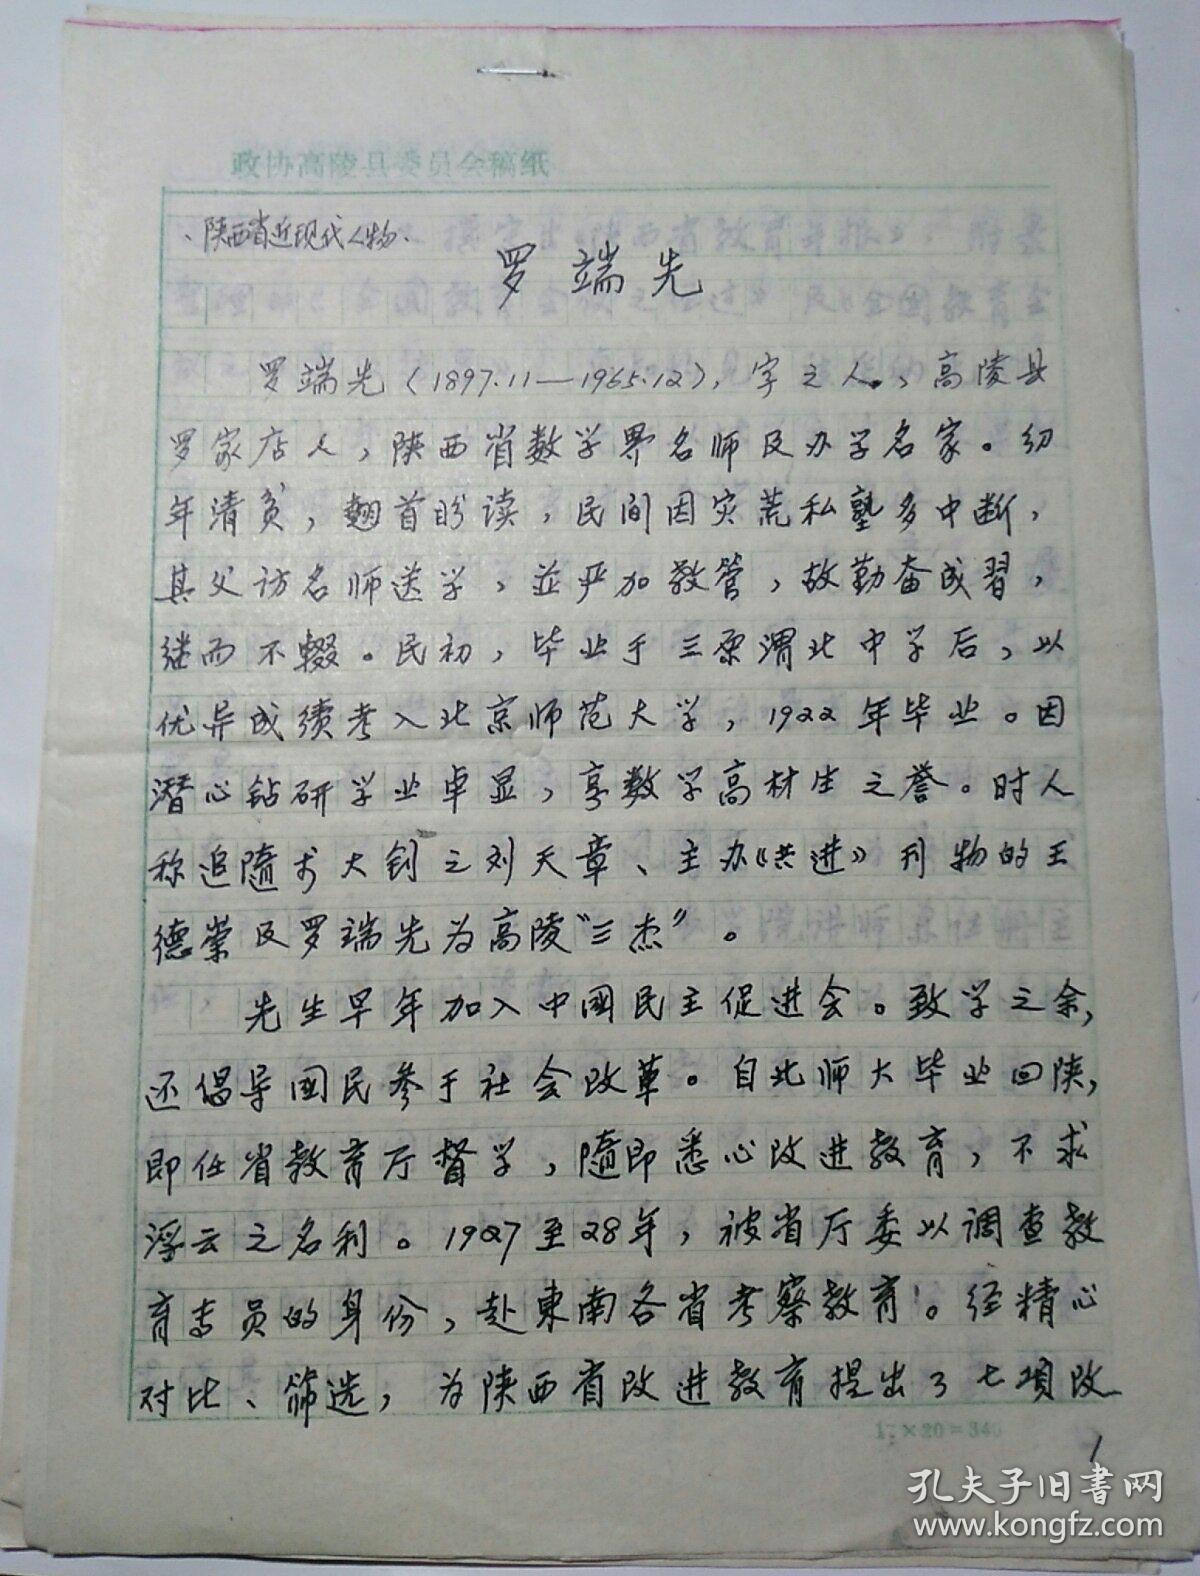 政协高陵县委员会稿纸
、陕西省近现代人物、
罗端先
罗端先（1897.11—1965.12），字之人。，高陵县
罗家店人，陕西省数学界名师及办学名家。幼
年清贫，翘首盼读，民间因灾荒私塾多中断，
其父访名师送学，並严加教管，故勤奋成習，
继而不輟。民初，毕业于三原渭北中学后，以
优异成绩考入北京师范大学，1922年毕业。因
潜心钻研学业卓显，享数学高材生之誉。时人
称追隨大钊之刘天章、主办《共进》刊物的王
德崇及罗端先为高陵“三杰”。
先生早年加入中國民主促进会。致学之余，
还倡导國民参于社会改革。自北师大毕业回陕，
即任省教育厅督学，隨即悉心改进教育，不求
浮云之名利。1927至28年，被省厅委以调查教
育专员的身份，赴東南各省考察教育。经精心
对比、筛选，为陕西省改进教育提出了七項改
17×20=340
1
孔夫子旧书网
www.kongfz.com